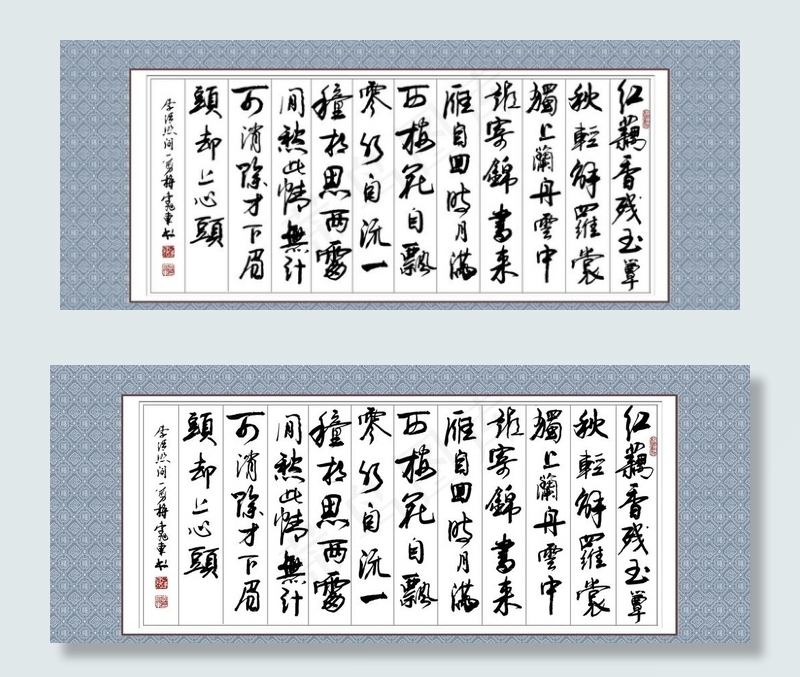 红藕香残玉簟
秋輕解羅裳
獨上蘭舟雲中
誰寄錦書来
雁自回时月滿
西楼花自飄
零水自流一
種相思两處
闲愁此情無計
可消除才下眉
頭却上心頭
李清照词一剪梅
红藕香残玉簟
秋輕解羅裳
獨上蘭舟雲中
誰寄錦書来
雁自回时月滿
西楼花自飄
零水自流一
種相思两處
闲愁此情無計
可消除才下眉
頭却上心頭
李清照词一剪梅